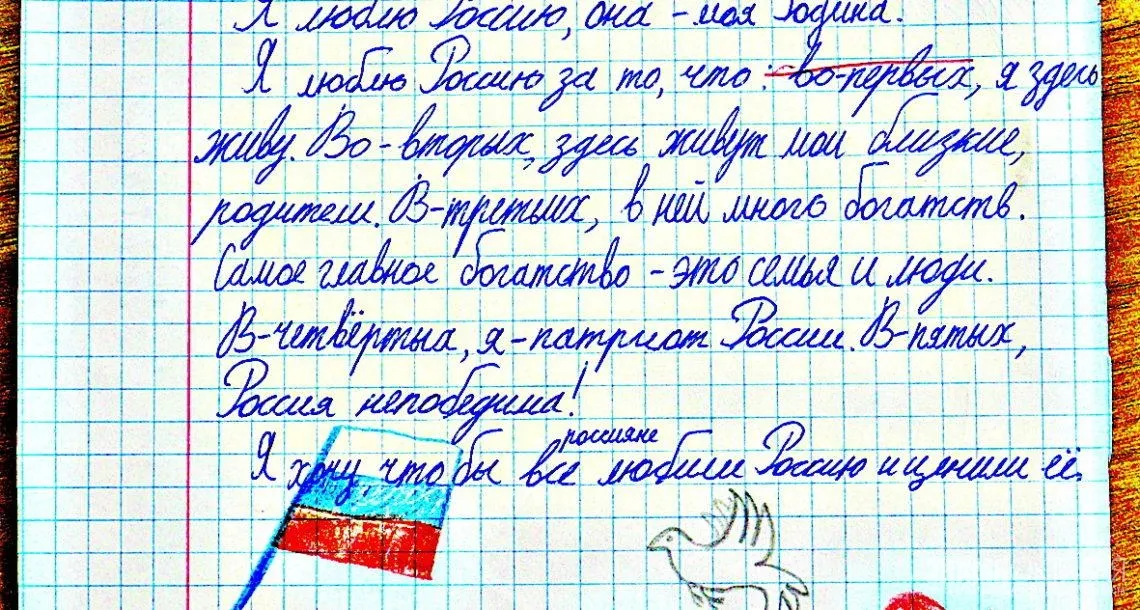 Я люблю Россию, она - моя Родина.
Я люблю Россию за то, что: во-первых, я здесь
живу. Во-вторых, здесь живут мои близкие,
родители. В-третьих, в ней много богатств.
Самое главное богатство - это семья и люди.
В-четвёртых, я - патриот России. В-пятых,
Россия непобедима!
россияне
Я хочу, что бы все любили Россию и ценили её.